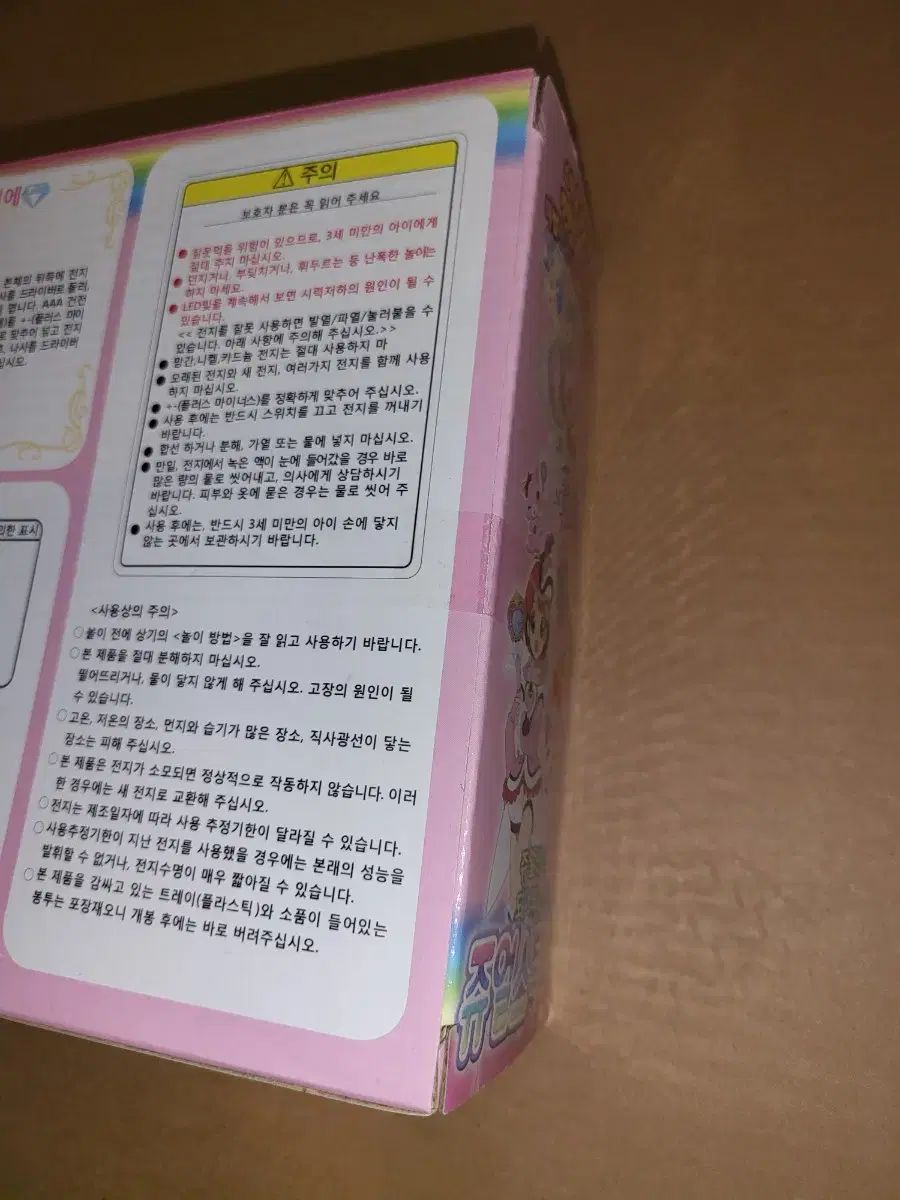 본체의 뒤쪽에 전지
드라이버로 풀러,
엽니다. AAA 건전
+-(플러스 마이
맞추어 넣고 전지
나사를 드라이버
십시오.
표시
주의
보호자 분은 꼭 읽어 주세요
잘못먹을 위험이 있으므로, 3세 미만의 아이에게
절대 주지 마십시오.
던지거나, 부딪치거나, 휘두르는 등 난폭한 놀이는
하지 마세요.
LED빛을 계속해서 보면 시력저하의 원인이 될 수
있습니다.
<< 전지를 잘못 사용하면 발열/파열/눌러붙을 수
있습니다. 아래 사항에 주의해 주십시오.>>
● 망간,니켈,카드늄 전지는 절대 사용하지 마
● 오래된 전지와 새 전지, 여러가지 전지를 함께 사용
하지 마십시오.
● +-(플러스 마이너스)를 정확하게 맞추어 주십시오.
● 사용 후에는 반드시 스위치를 끄고 전지를 꺼내기
바랍니다.
● 합선 하거나 분해, 가열 또는 물에 넣지 마십시오.
● 만일, 전지에서 녹은 액이 눈에 들어갔을 경우 바로
많은 량의 물로 씻어내고, 의사에게 상담하시기
바랍니다. 피부와 옷에 묻은 경우는 물로 씻어 주
십시오.
● 사용 후에는, 반드시 3세 미만의 아이 손에 닿지
않는 곳에서 보관하시기 바랍니다.
<사용상의 주의>
○놀이 전에 상기의 <놀이 방법>을 잘 읽고 사용하기 바랍니다.
○본 제품을 절대 분해하지 마십시오.
떨어뜨리거나, 물이 닿지 않게 해 주십시오. 고장의 원인이 될
수 있습니다.
○고온, 저온의 장소, 먼지와 습기가 많은 장소, 직사광선이 닿는
장소는 피해 주십시오.
○본 제품은 전지가 소모되면 정상적으로 작동하지 않습니다. 이러
한 경우에는 새 전지로 교환해 주십시오.
○전지는 제조일자에 따라 사용 추정기한이 달라질 수 있습니다.
○사용추정기한이 지난 전지를 사용했을 경우에는 본래의 성능을
발휘할 수 없거나, 전지수명이 매우 짧아질 수 있습니다.
○본 제품을 감싸고 있는 트레이(플라스틱)와 소품이 들어있는
봉투는 포장재오니 개봉 후에는 바로 버려주십시오.